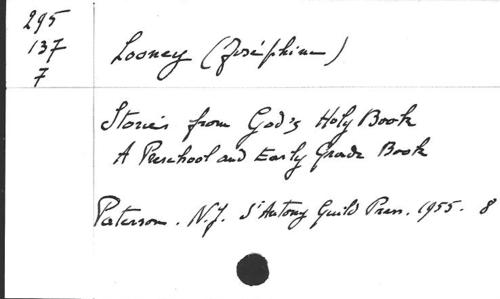 295
137
7
Looney (Joséphine)
Stories from God's Holy Book
A Preschool and Early Grade Book
Paterson. N.J. St Antony Guild Press. 1955. 8